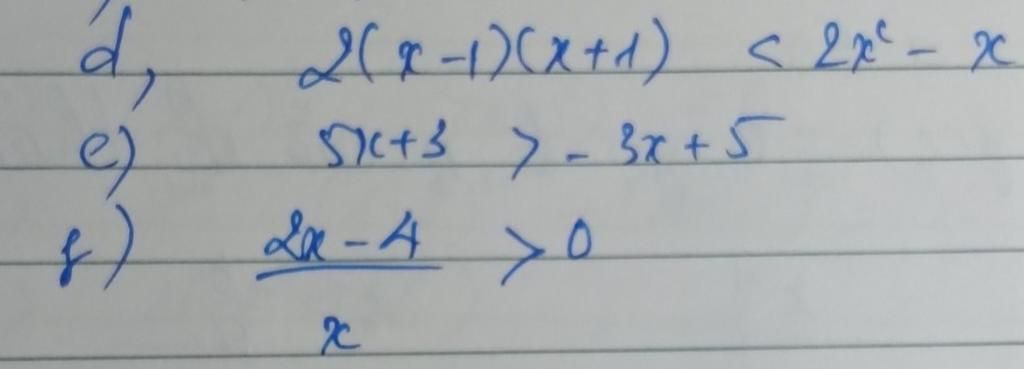 d, 2(x-1)(x+1) < 2x² - x
e) 5x+3 > - 3x + 5
f) \frac{2x-4}{x} > 0